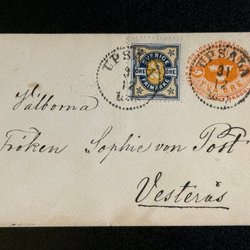 UPSALA
SVERIGE
ÖRE ÖRE
FRIMÄRKE
UPSALA
31
Välborna
Fröken Sophie von Post
Vesterås